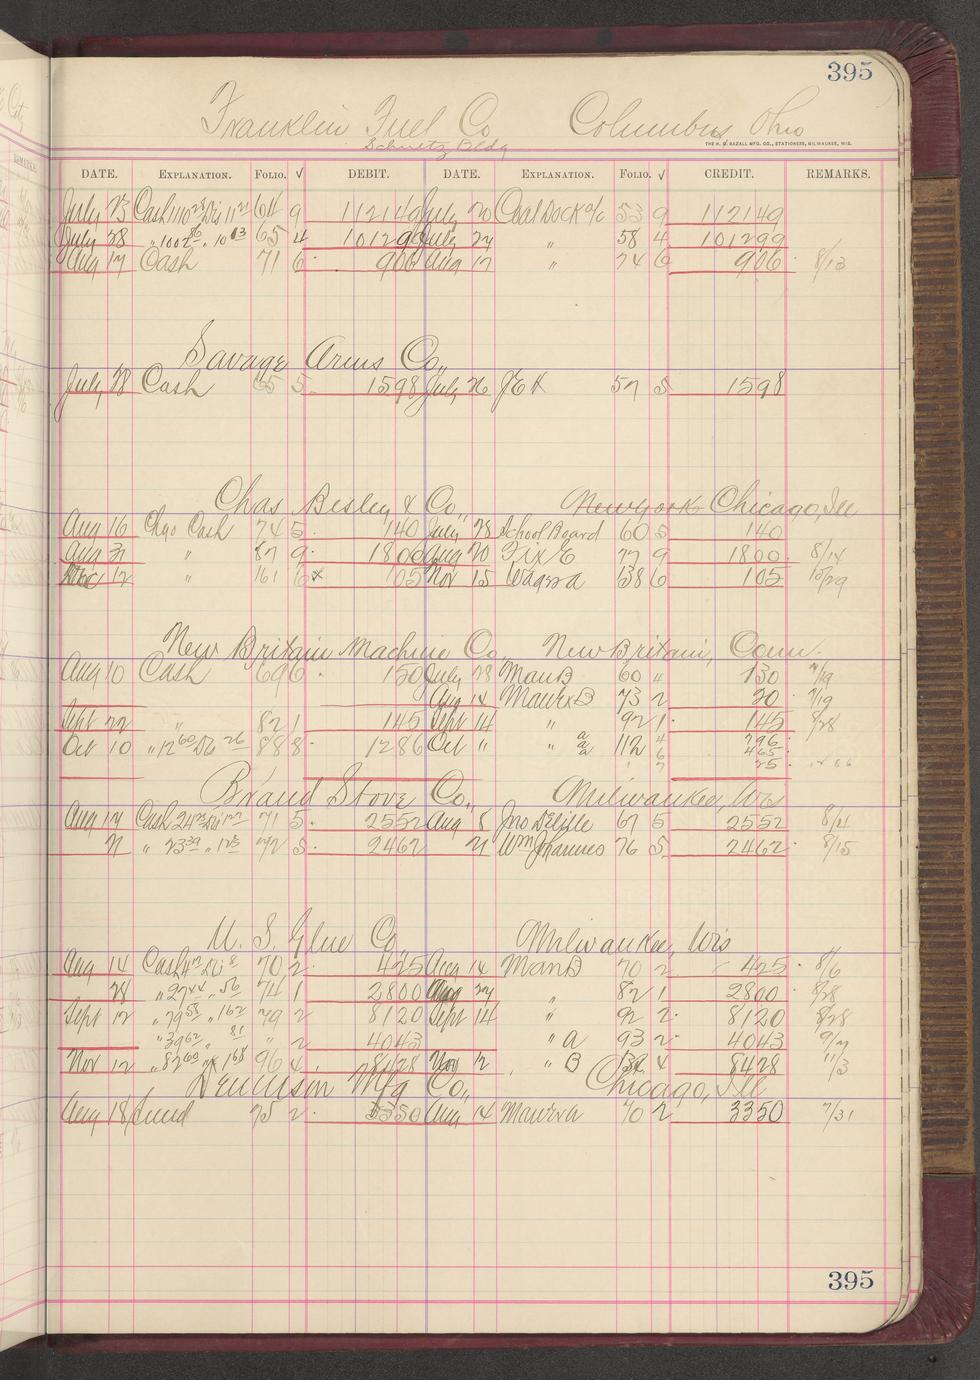 395
Franklin Fuel Co Columbus Ohio
Schultz Bldg
THE H. G. RAZALL MFG. CO., STATIONERS, MILWAUKEE, WIS.
DATE. EXPLANATION. FOLIO. √ DEBIT. DATE. EXPLANATION. FOLIO. √ CREDIT. REMARKS.
July 23 Cash 64 9 112149 July 20 Coal Dock a/c 53 9 112149
July 28 " 65 4 101299 July 27 " 58 4 101299
Aug 17 Cash 71 6 906 Aug 12 " 74 6 906 8/13
Savage Arms Co.,
July 28 Cash 65 5 1598 July 26 57 5 1598
Chas Besley & Co., New York Chicago, Ill
Aug 16 Chgo Cash 74 5 140 July 28 School Board 60 5 140
Aug 31 " 87 9 1800 Aug 20 77 9 1800 8/14
Dec 12 " 161 6 x 105 Nov 15 138 6 105
New Britain Machine Co. New Britain, Conn.
Aug 10 Cash 69 6 150 July 28 Man B 60 " 130
Aug 14 73 2 20 7/19
Sept 22 " 82 1 145 Sept 14 " 92 1 145 8/28
Oct 10 " 12 60 Dis 26 88 8 1286 Oct " " a 112 4 796
a 6 465
7 25
Brand Stove Co., Milwaukee, Wis
Aug 17 Cash 71 5 2552 Aug 8 Jno Delille 67 5 2552
21 " 23 39 " 72 5 2462 21 Wm Johannes 76 5 2462 8/15
U. S. Glue Co. Milwaukee, Wis
Aug 14 Cash 70 2 425 Aug 14 Man B 70 2 425 8/6
28 " 27 44 " 56 74 1 2800 Aug 27 " 82 1 2800 8/28
Sept 12 " 79 58 " 1 62 79 2 8120 Sept 14 " 92 2 8120 8/28
" 39 62 " 81 " 2 4043 " a 93 2 4043 9/7
Nov 12 " 82 60 " 1 68 96 4 8428 Nov 12 " B 4 8428 11/3
Dennison Mfg Co., Chicago, Ill
Aug 18 75 2 3350 Aug 14 70 2 3350 7/31
395